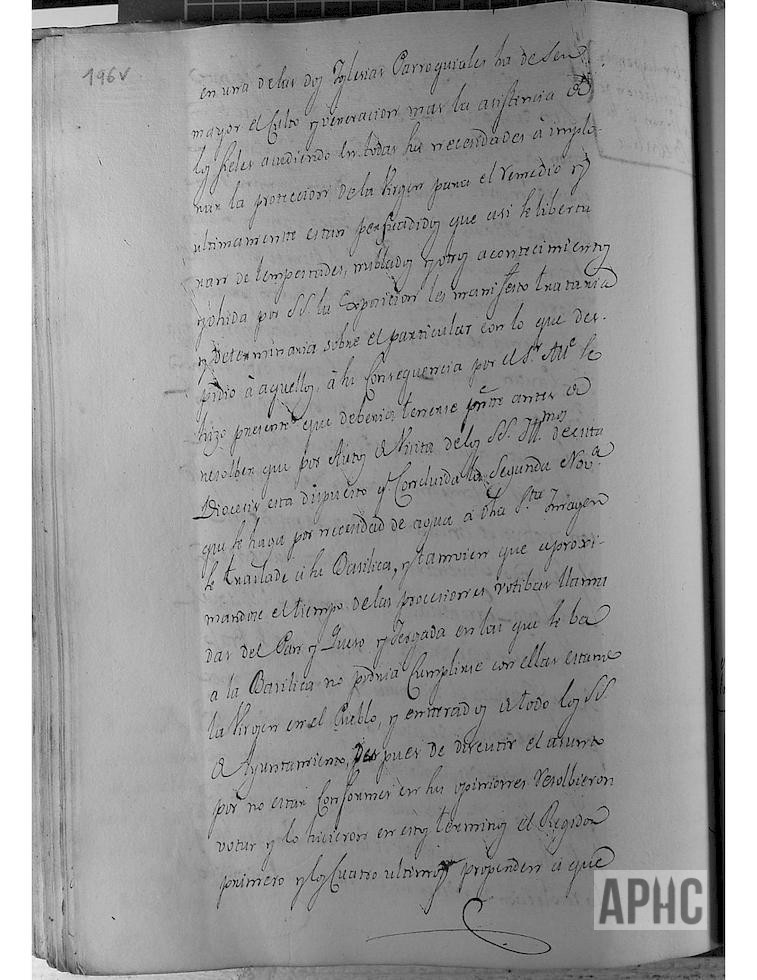 196v
en una de las dos Iglesias Parroquiales ha de ser
mayor el Culto y veneracion mas la asistencia de
los fieles acudiendo en todas sus necesidades à implo-
rar la proteccion de la Virgen para el remedio y
ultimamente estar persuadidos que asi se liberta
ran de tempestades, nublados y otros acontecimientos
y ohida por SS. la Exposicion les manifesto trataria
y determinaria sobre el particular con lo que des-
pidio à aquellos, à su Consequencia por el Sr. Alle se
hizo presente que deberia tenerse pnte antes de
resolber que por Autos de Visita de los SS. Illmos de esta
Diocesis esta dispuesto q. Concluida la Segunda Nova.
que se haga por necesidad de agua à dha Sta Imagen
se traslade à su Basilica, y tamvien que aproxi-
mandose el tiempo de las procesiones votibas llama
das del Pan y Queso y Jorgada en las que se ba
a la Basilica no podria Cumplirse con ellas estando
la Virgen en el Pueblo, y enterados de todo los SS.
de Ayuntamiento, despues de discutir el asunto
por no estar Conformes en sus opiniones resolbieron
votar y lo hicieron en estos terminos el Regidor
primero y los Cuatro ultimos propenden à que
APHC